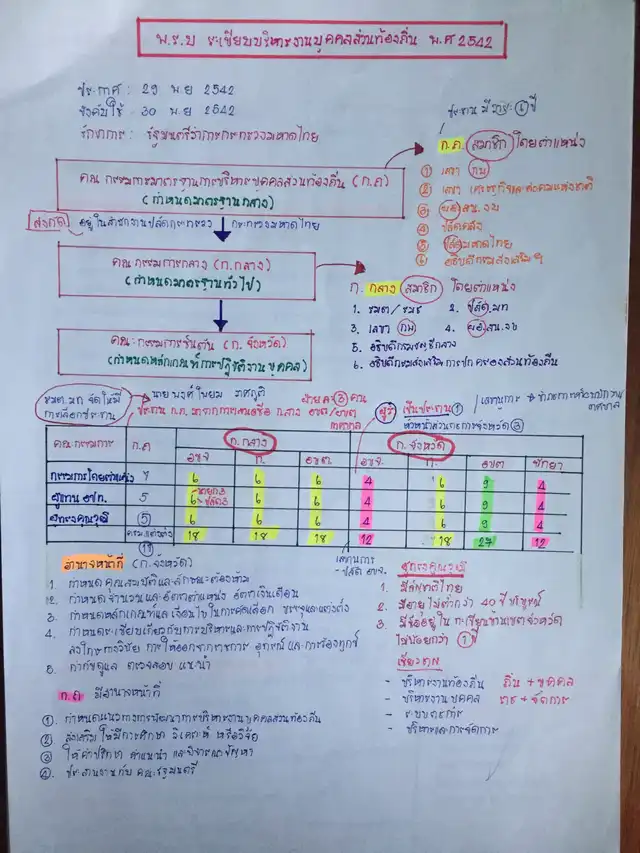 พ.ร.บ ระเบียบบริหารงานบุคคลส่วนท้องถิ่น พ.ศ 2542
ประกาศ : 29 พ.ย 2542
บังคับใช้ : 30 พ.ย 2542
รักษาการ : รัฐมนตรีว่าการกระทรวงมหาดไทย
ประธาน มีวาระ 6 ปี
ก.ถ สมาชิก โดยตำแหน่ง
① เลขา กพ
② เลขา เศรษฐกิจและสังคมแห่งชาติ
③ ผอ สน.งบ
④ ปลัดคลัง
⑤ ปลัดมหาดไทย
⑥ อธิบดีกรมส่งเสริมฯ
คณะกรรมการมาตรฐานการบริหารบุคคลส่วนท้องถิ่น (ก.ถ)
(กำหนดมาตรฐานกลาง)
สังกัด อยู่ในสำนักงานปลัดกระทรวง กระทรวงมหาดไทย
คณะกรรมการกลาง (ก.กลาง)
(กำหนดมาตรฐานทั่วไป)
ก. กลาง สมาชิก โดยตำแหน่ง
1. รมต/รมช 2. ปลัด.มท
3. เลขา กพ 4. ผอ.สน.งบ
5. อธิบดีกรมบัญชีกลาง
6. อธิบดีกรมส่งเสริมการปกครองส่วนท้องถิ่น
คณะกรรมการชั้นต้น (ก. จังหวัด)
(กำหนดหลักเกณฑ์การปฏิบัติงานบุคคล)
รมต.มท จัดให้มีการเลือกประธาน
ประธาน ก.ถ.
ฝ่ายละ ③ คน
ผู้ว่า เป็นประธาน ①
หัวหน้าส่วนราชการจังหวัด ③
คณะกรรมการ ก.ถ ก.กลาง ก.จังหวัด
อบจ ท. อบต. อบจ. ท. อบต พัทยา
กรรมการโดยตำแหน่ง 6 6 6 4 6 9 4
ผู้แทน อปท. 5 6 6 6 4 6 9 4
นายก3
ปลัด3
ผู้ทรงคุณวุฒิ ⑤ 6 6 6 4 6 9 4
18 18 18 12 18 27 12
เลขานุการ
- ปลัด อบจ.
อำนาจหน้าที่ (ก.จังหวัด)
1. กำหนด คุณสมบัติและลักษณะต้องห้าม
2. กำหนด จำนวนและอัตราตำแหน่ง อัตราเงินเดือน
3. กำหนดหลักเกณฑ์และเงื่อนไขในการคัดเลือก บรรจุและแต่งตั้ง
4. กำหนดระเบียบเกี่ยวกับการบริหารและการปฏิบัติงาน
ลงโทษทางวินัย การให้ออกจากราชการ อุทธรณ์ และการร้องทุกข์
5. กำกับดูแล ตรวจสอบ แนะนำ
ผู้ทรงคุณวุฒิ
1. มีสัญชาติไทย
2. มีอายุไม่ต่ำกว่า 40 ปีบริบูรณ์
3. มีชื่ออยู่ใน ทะเบียนบ้านเขตจังหวัด
ไม่น้อยกว่า ① ปี
เชี่ยวชาญ
- บริหารงานท้องถิ่น ถิ่น + บุคคล
- บริหารงานบุคคล ราช + จัดการ
- ระบบราชการ
- บริหารและการจัดการ
ก.ถ มีอำนาจหน้าที่
① กำหนดแนวทางการพัฒนาการบริหารงานบุคคลส่วนท้องถิ่น
② ส่งเสริมให้มีการศึกษา วิเคราะห์ หรือวิจัย
③ ให้คำปรึกษา คำแนะนำ และพิจารณาปัญหา
④ ประสานงานกับ คณะรัฐมนตรี